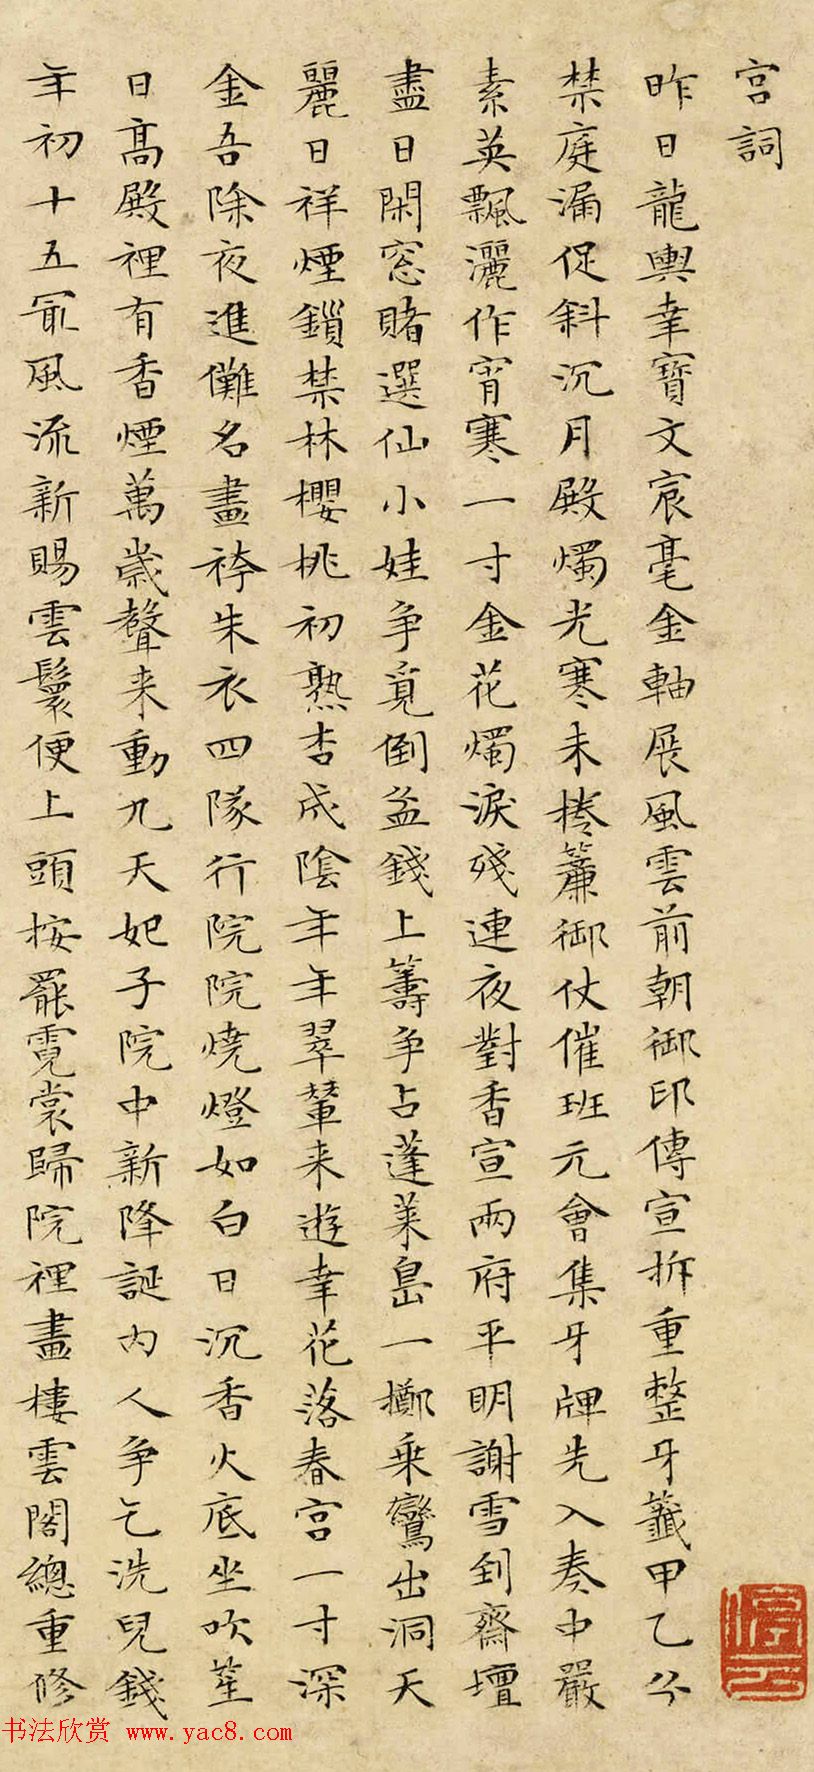 宮詞
昨日龍輿幸寶文宸毫金軸展風雲前朝御印傳宣拆重整牙籤甲乙分
禁庭漏促斜沉月殿燭光寒未捲簾御仗催班元會集牙牌先入奏中嚴
素英飄灑作宵寒一寸金花燭淚殘連夜對香宣兩府平明謝雪到齋壇
盡日閑窓賭選仙小娃争覓倒盆錢上籌争占蓬萊島一擲乘鸞出洞天
麗日祥煙鎖禁林櫻桃初熟杏成陰年年翠輦来遊幸花落春宮一寸深
金吾除夜進儺名畫袴朱衣四隊行院院燒燈如白日沉香火底坐吹笙
日高殿裡有香煙萬歲聲来動九天妃子院中新降誕內人争乞洗兒錢
年初十五冣風流新賜雲鬟便上頭按罷霓裳歸院裡畫樓雲閣總重修
书法欣赏 www.yac8.com